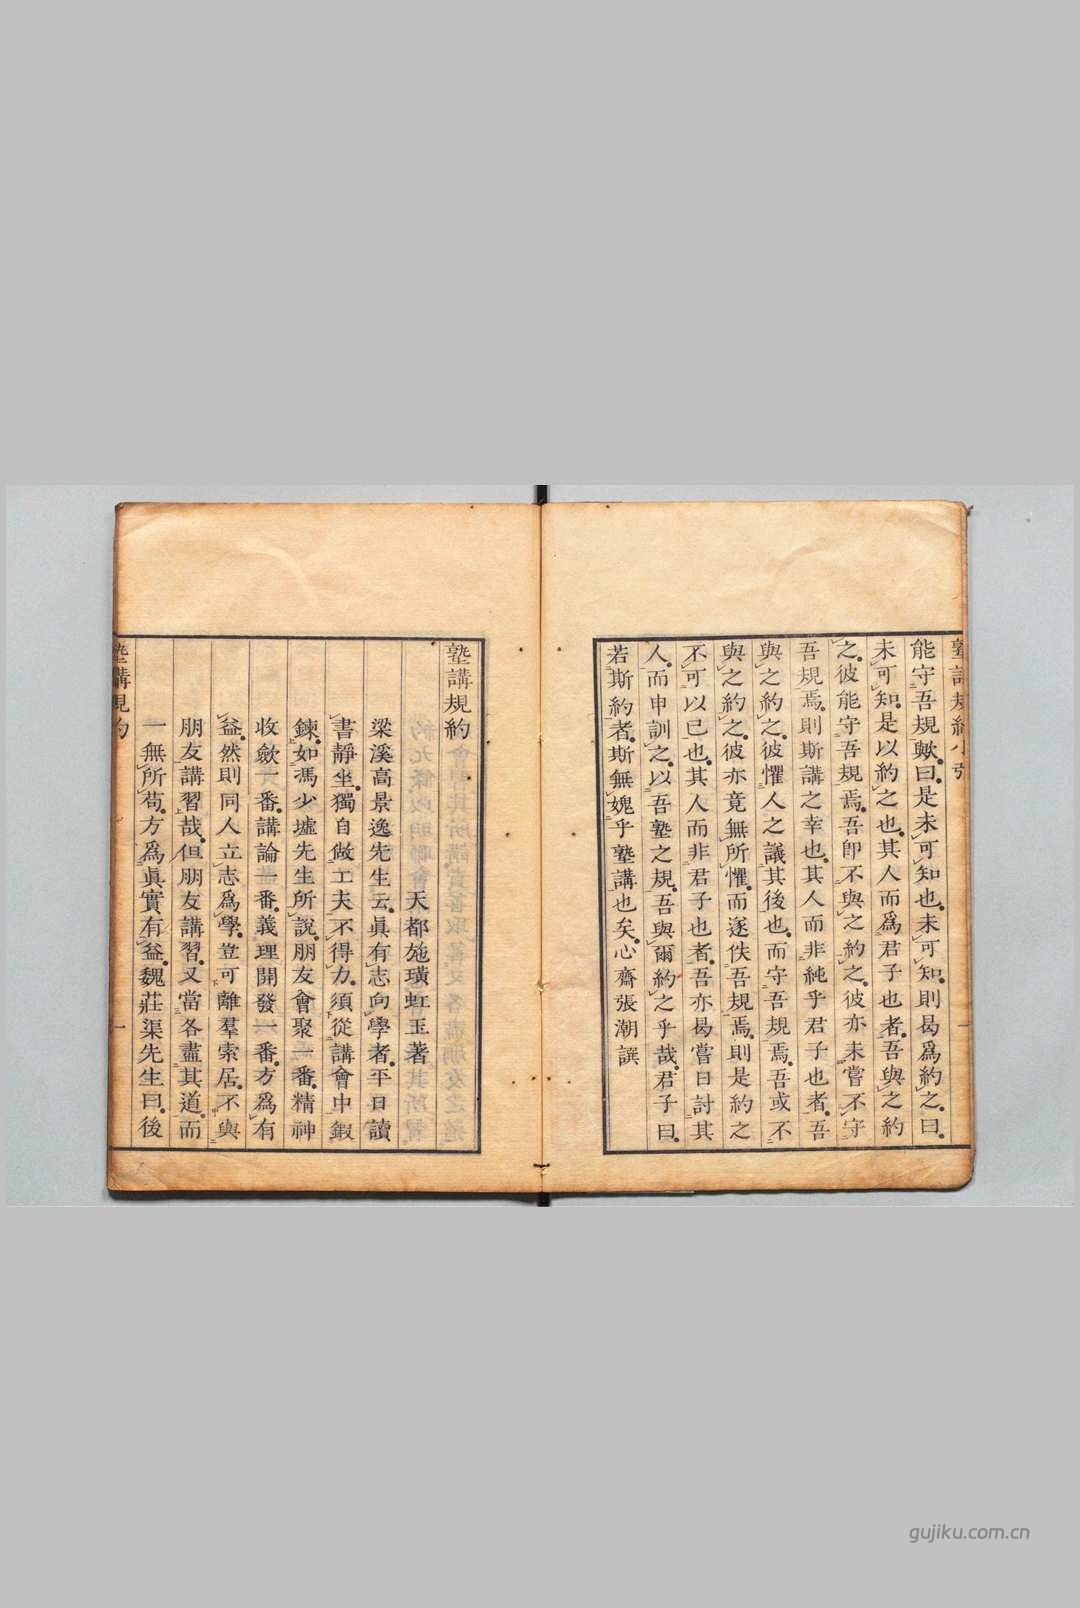 塾講規約小引
能守吾規歟曰是未可知也未可知則曷爲約之曰
未可知是以約之也其人而爲君子也者吾與之約
之彼能守吾規焉吾卽不與之約之彼亦未嘗不守
吾規焉則斯講之幸也其人而非純乎君子也者吾
與之約之彼懼人之議其後也而守吾規焉吾或不
與之約之彼亦竟無所懼而遂佚吾規焉則是約之
不可以已也其人而非君子也者吾亦曷嘗日討其
人而申訓之以吾塾之規吾與爾約之乎哉君子曰
若斯約者斯無媿乎塾講也矣心齋張潮譔
塾講規約
天都施璜虹玉著
梁溪高景逸先生云眞有志向學者平日讀
書靜坐獨自做工夫不得力須從講會中鍜
鍊如馮少墟先生所說朋友會聚一番精神
收歛一番講論一番義理開發一番方爲有
益然則同人立志爲學豈可離羣索居不與
朋友講習哉但朋友講習又當各盡其道而
一無所苟方爲眞實有益魏莊渠先生曰後
塾講規約
一
一
gujiku.com.cn